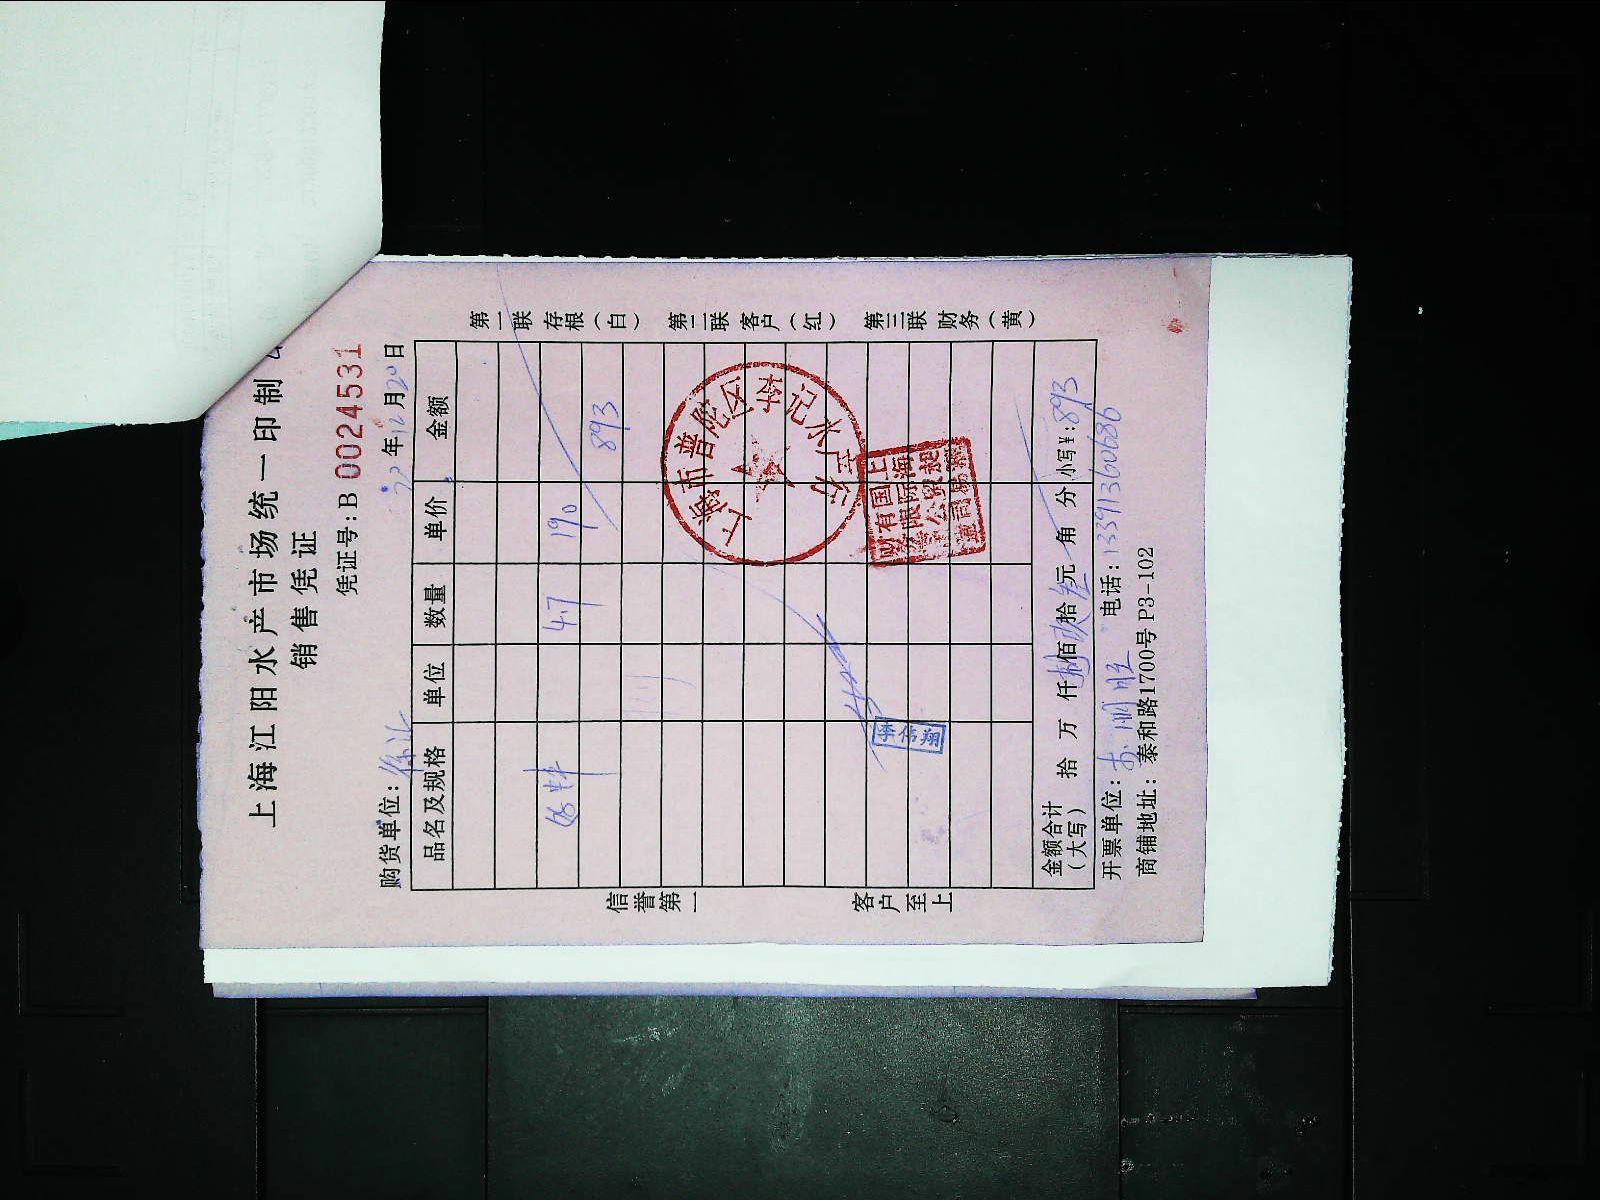 上海江阳水产市场统一印制
销售凭证
凭证号:B 0024531
购货单位: 年12月20日
品名及规格 单位 数量 单价 金额
4.7 190
893
第一联 存根(白) 第二联 客户(红) 第三联 财务(黄)
信誉第一
客户至上
上海市普陀区 记水产行
李伟翔
金额合计(大写) 拾 万 仟 捌佰玖拾叁元 角 分 小写¥:893
开票单位: 电话:13391360686
商铺地址:泰和路1700号P3-102